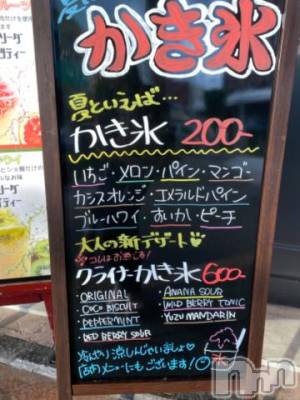 かき氷
夏といえば…
かき氷 200-
いちご・メロン・パイン・マンゴー
カシスオレンジ・エメラルドパイン
ブルーハワイ・すいか・ピーチ
大人の新デザート
コレはお酒です!
クライナーかき氷 600-
・ORIGINAL
・COCO BISCUIT
・PEPPERMINT
・RED BERRY SOUR
・ANANA SOUR
・WILD BERRY TONIC
・YUZU MANDARIN
にもございます!